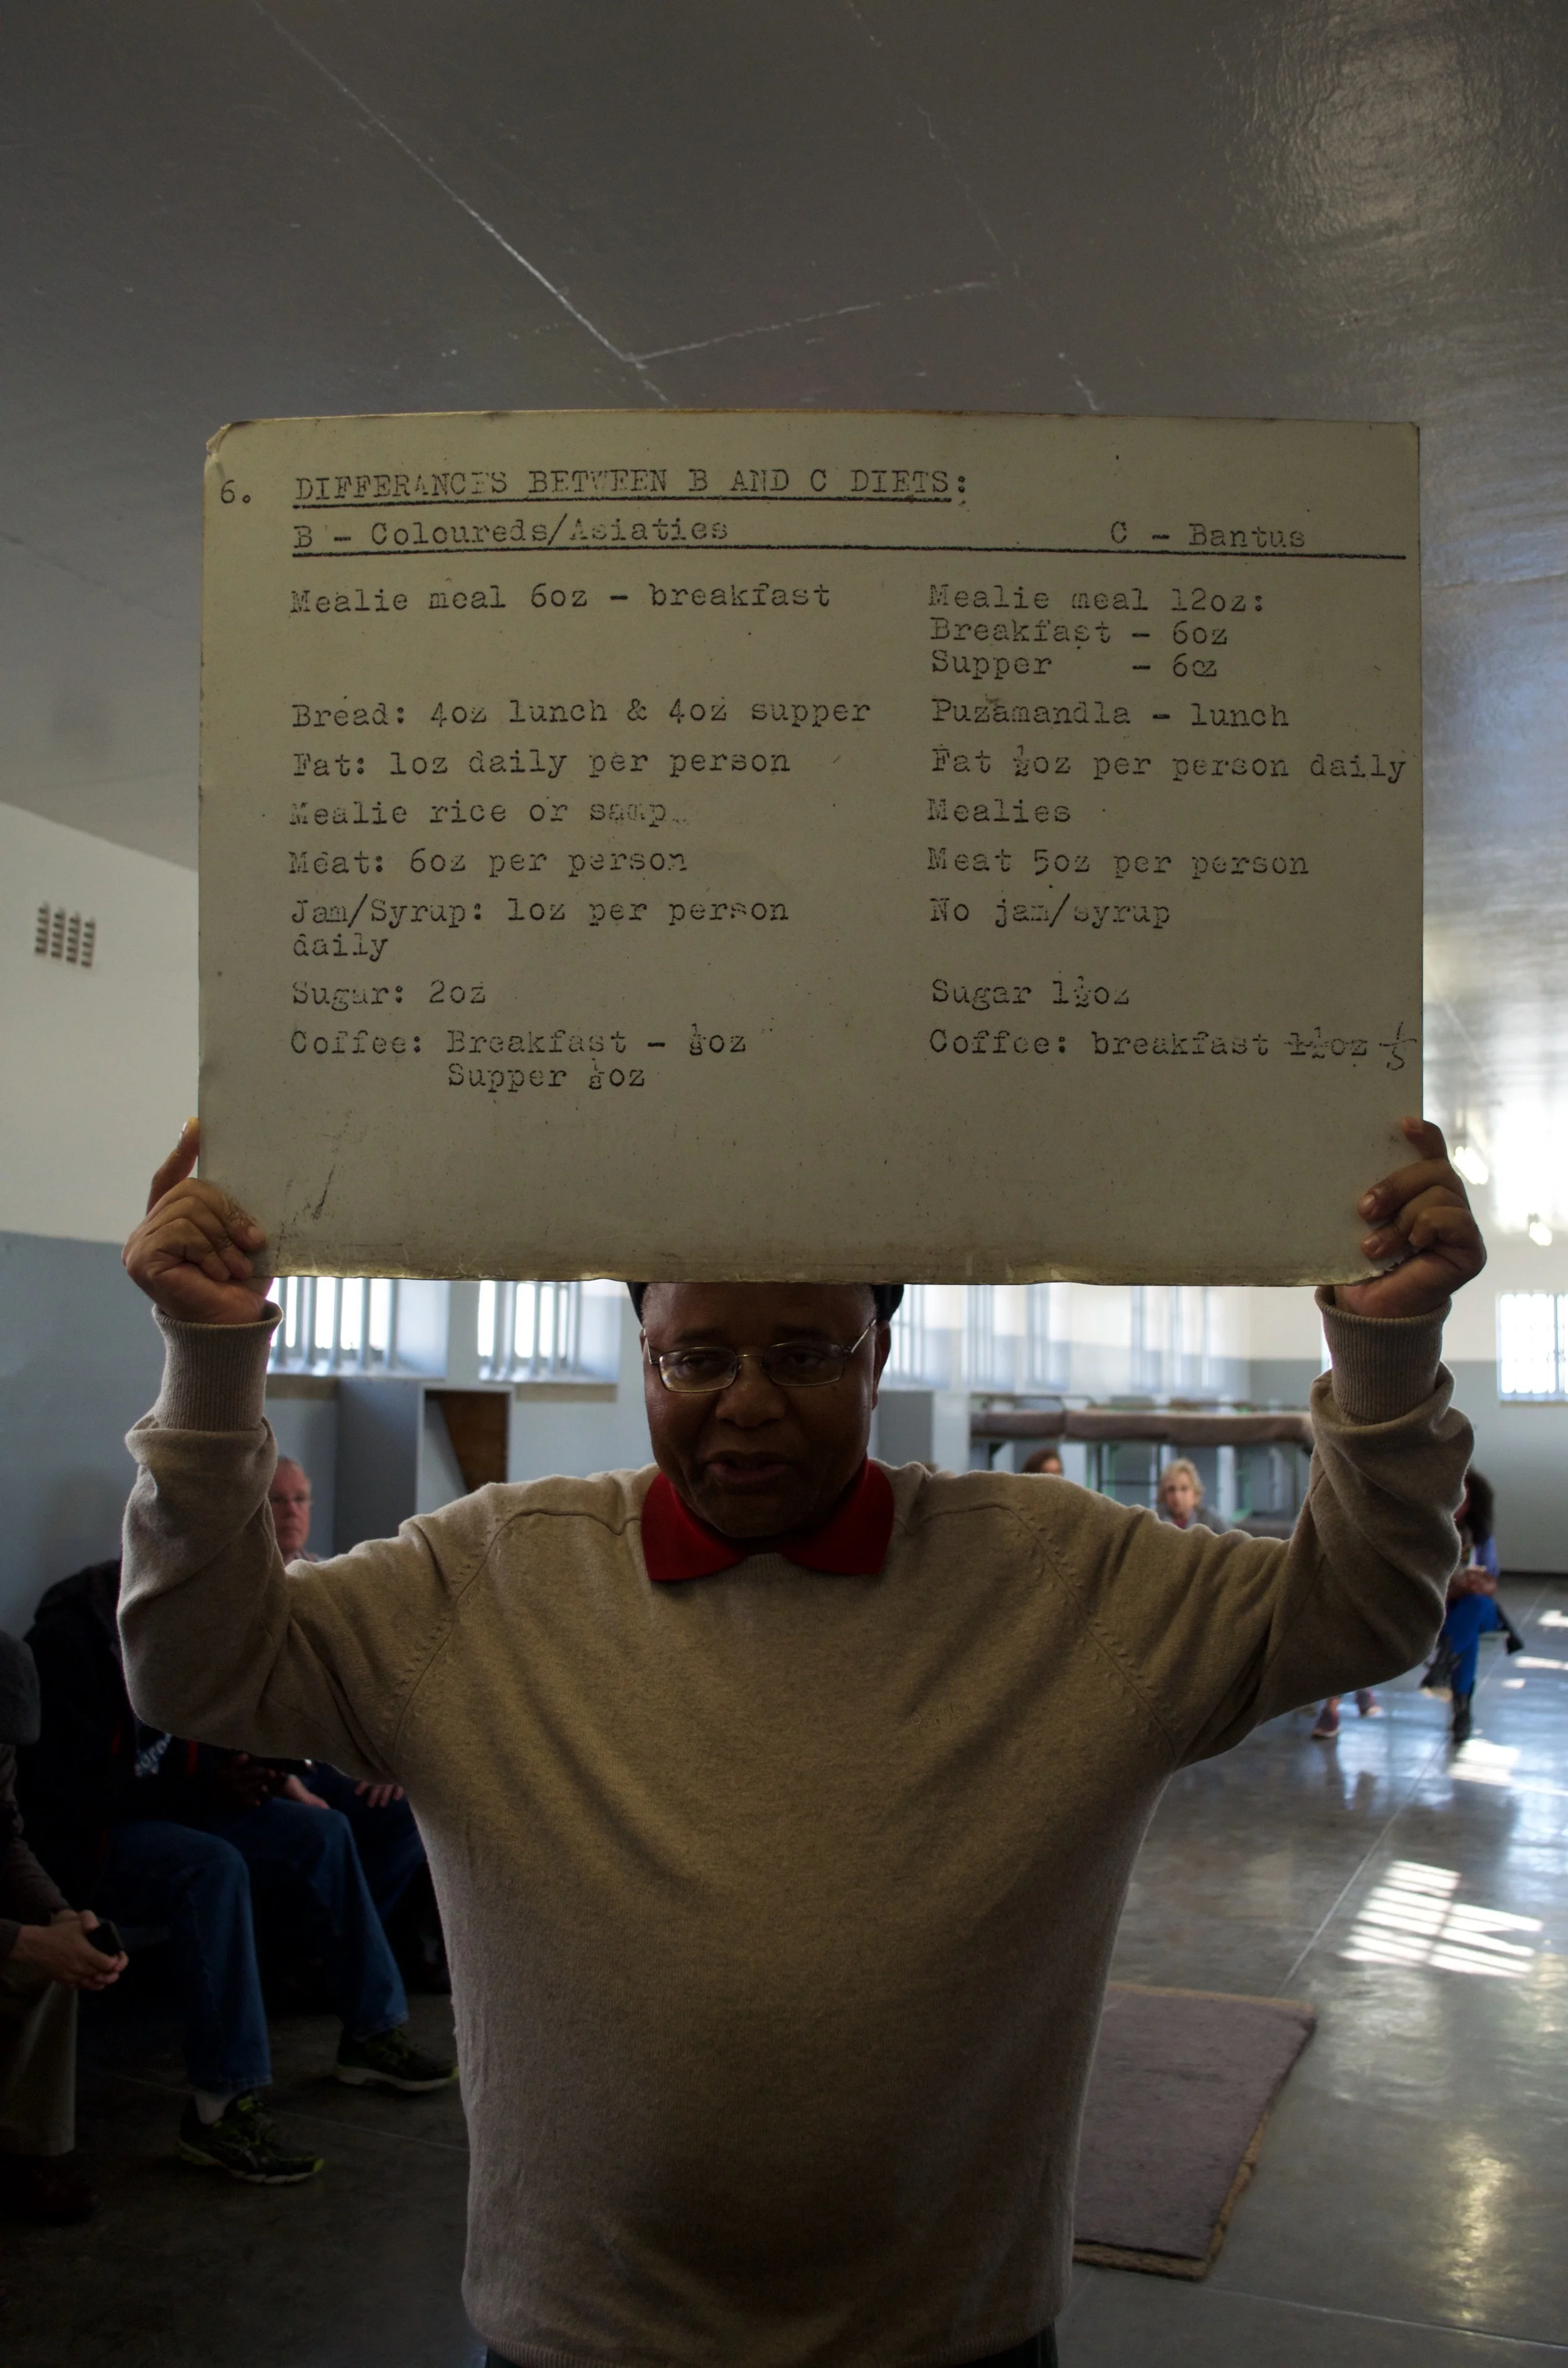 6. DIFFERANCES BETWEEN B AND C DIETS:
B - Coloureds/Asiaties C - Bantus
Mealie meal 6oz - breakfast Mealie meal 12oz:
Breakfast - 6oz
Supper - 6oz
Bread: 4oz lunch & 4oz supper Puzamandla - lunch
Fat: 1oz daily per person Fat ½oz per person daily
Mealie rice or samp Mealies
Meat: 6oz per person Meat 5oz per person
Jam/Syrup: 1oz per person No jam/syrup
daily
Sugar: 2oz Sugar 1½oz
Coffee: Breakfast - ⅛oz Coffee: breakfast 1½oz
Supper ⅛oz